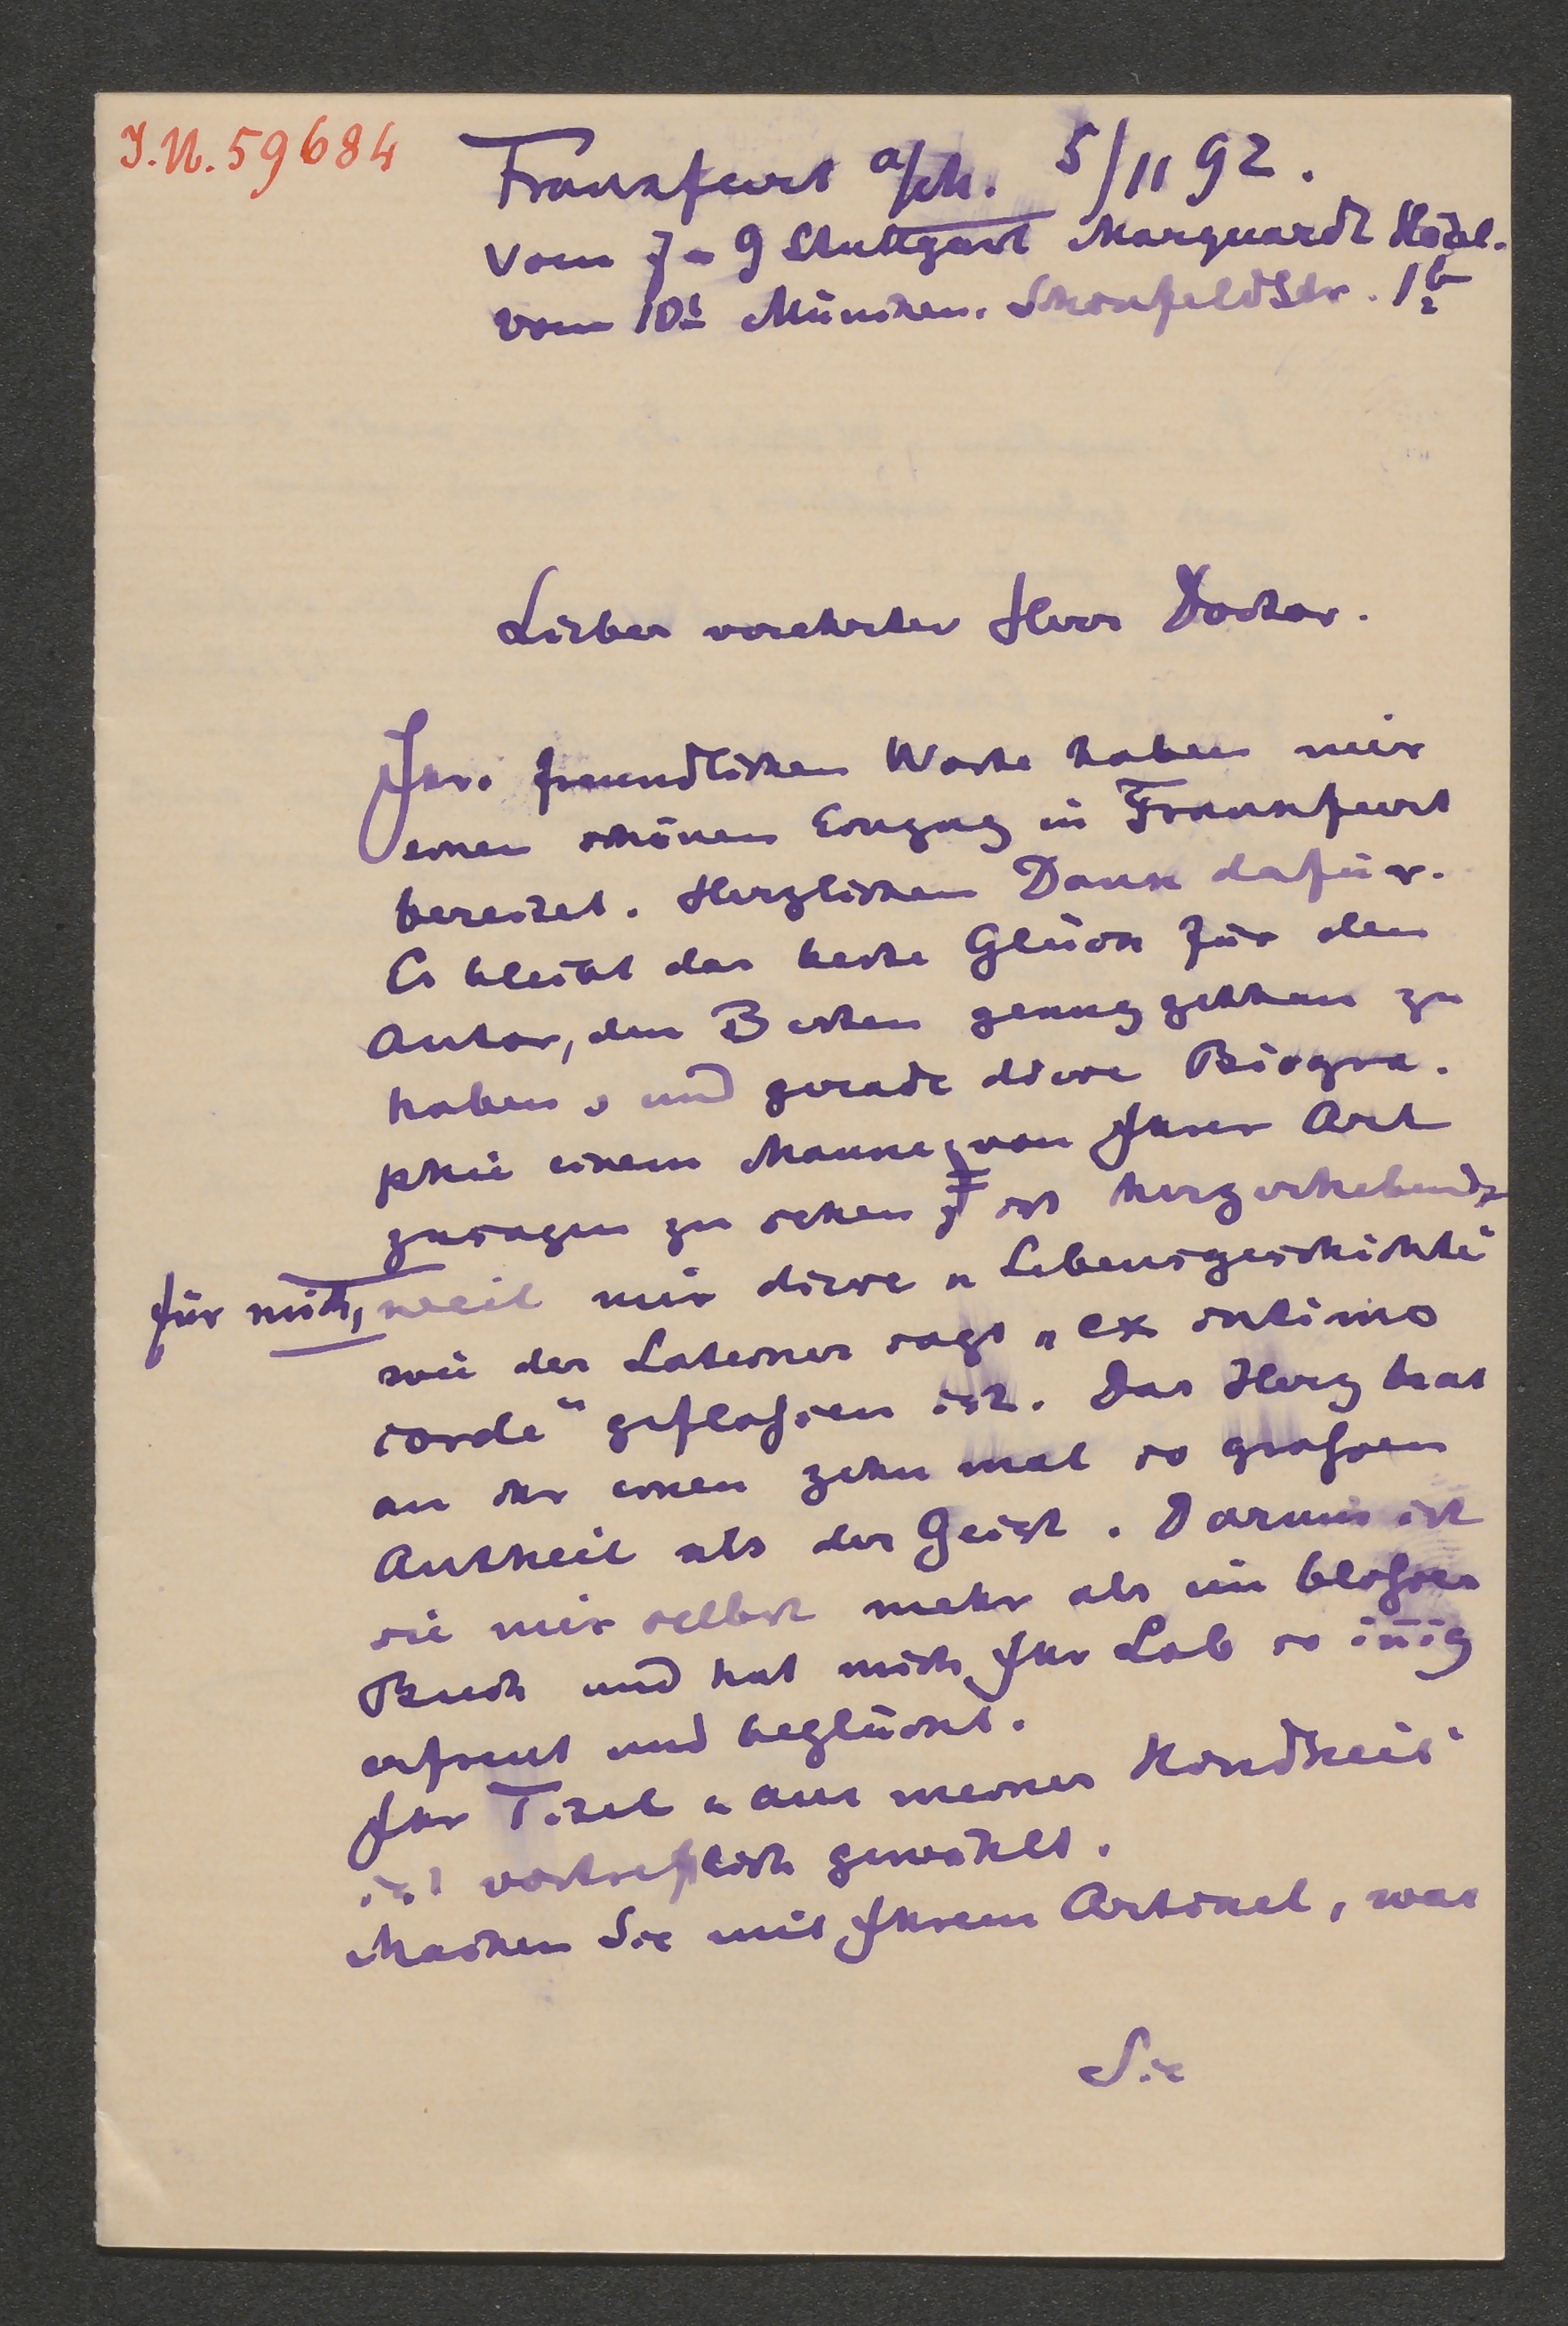 I.N. 59684
Frankfurt a/M. 5/11 92.
Vom 7-9 Stuttgart Marquardt Hôtel.
vom 10t München. Schönfeldstr. 1b
Lieber verehrter Herr Doctor.
Ihre freundlichen Worte haben mir
einen schönen Einzug in Frankfurt
bereitet. Herzlichen Dank dafür.
Es bleibt das beste Glück für den
Autor, den Besten genug gethan zu
haben, und gerade diese Biogra-
phie einem Manne von Ihrer Art
zusagen zu sehen, ist herzerhebend
für mich, weil mir diese „Lebensgeschichte"
wie der Lateiner sagt „ex intimo
corde" geflossen ist. Das Herz hat
an ihr einen zehn mal so grossen
Antheil als der Geist. Darum ist
sie mir selbst mehr als ein blosses
Buch und hat mich Ihr Lob so in̄ig
erfreut und beglückt.
Ihr Titel „aus meiner Kindheit"
ist vortrefflich gewählt.
Machen Sie mit Ihrem Artikel, was
Sie